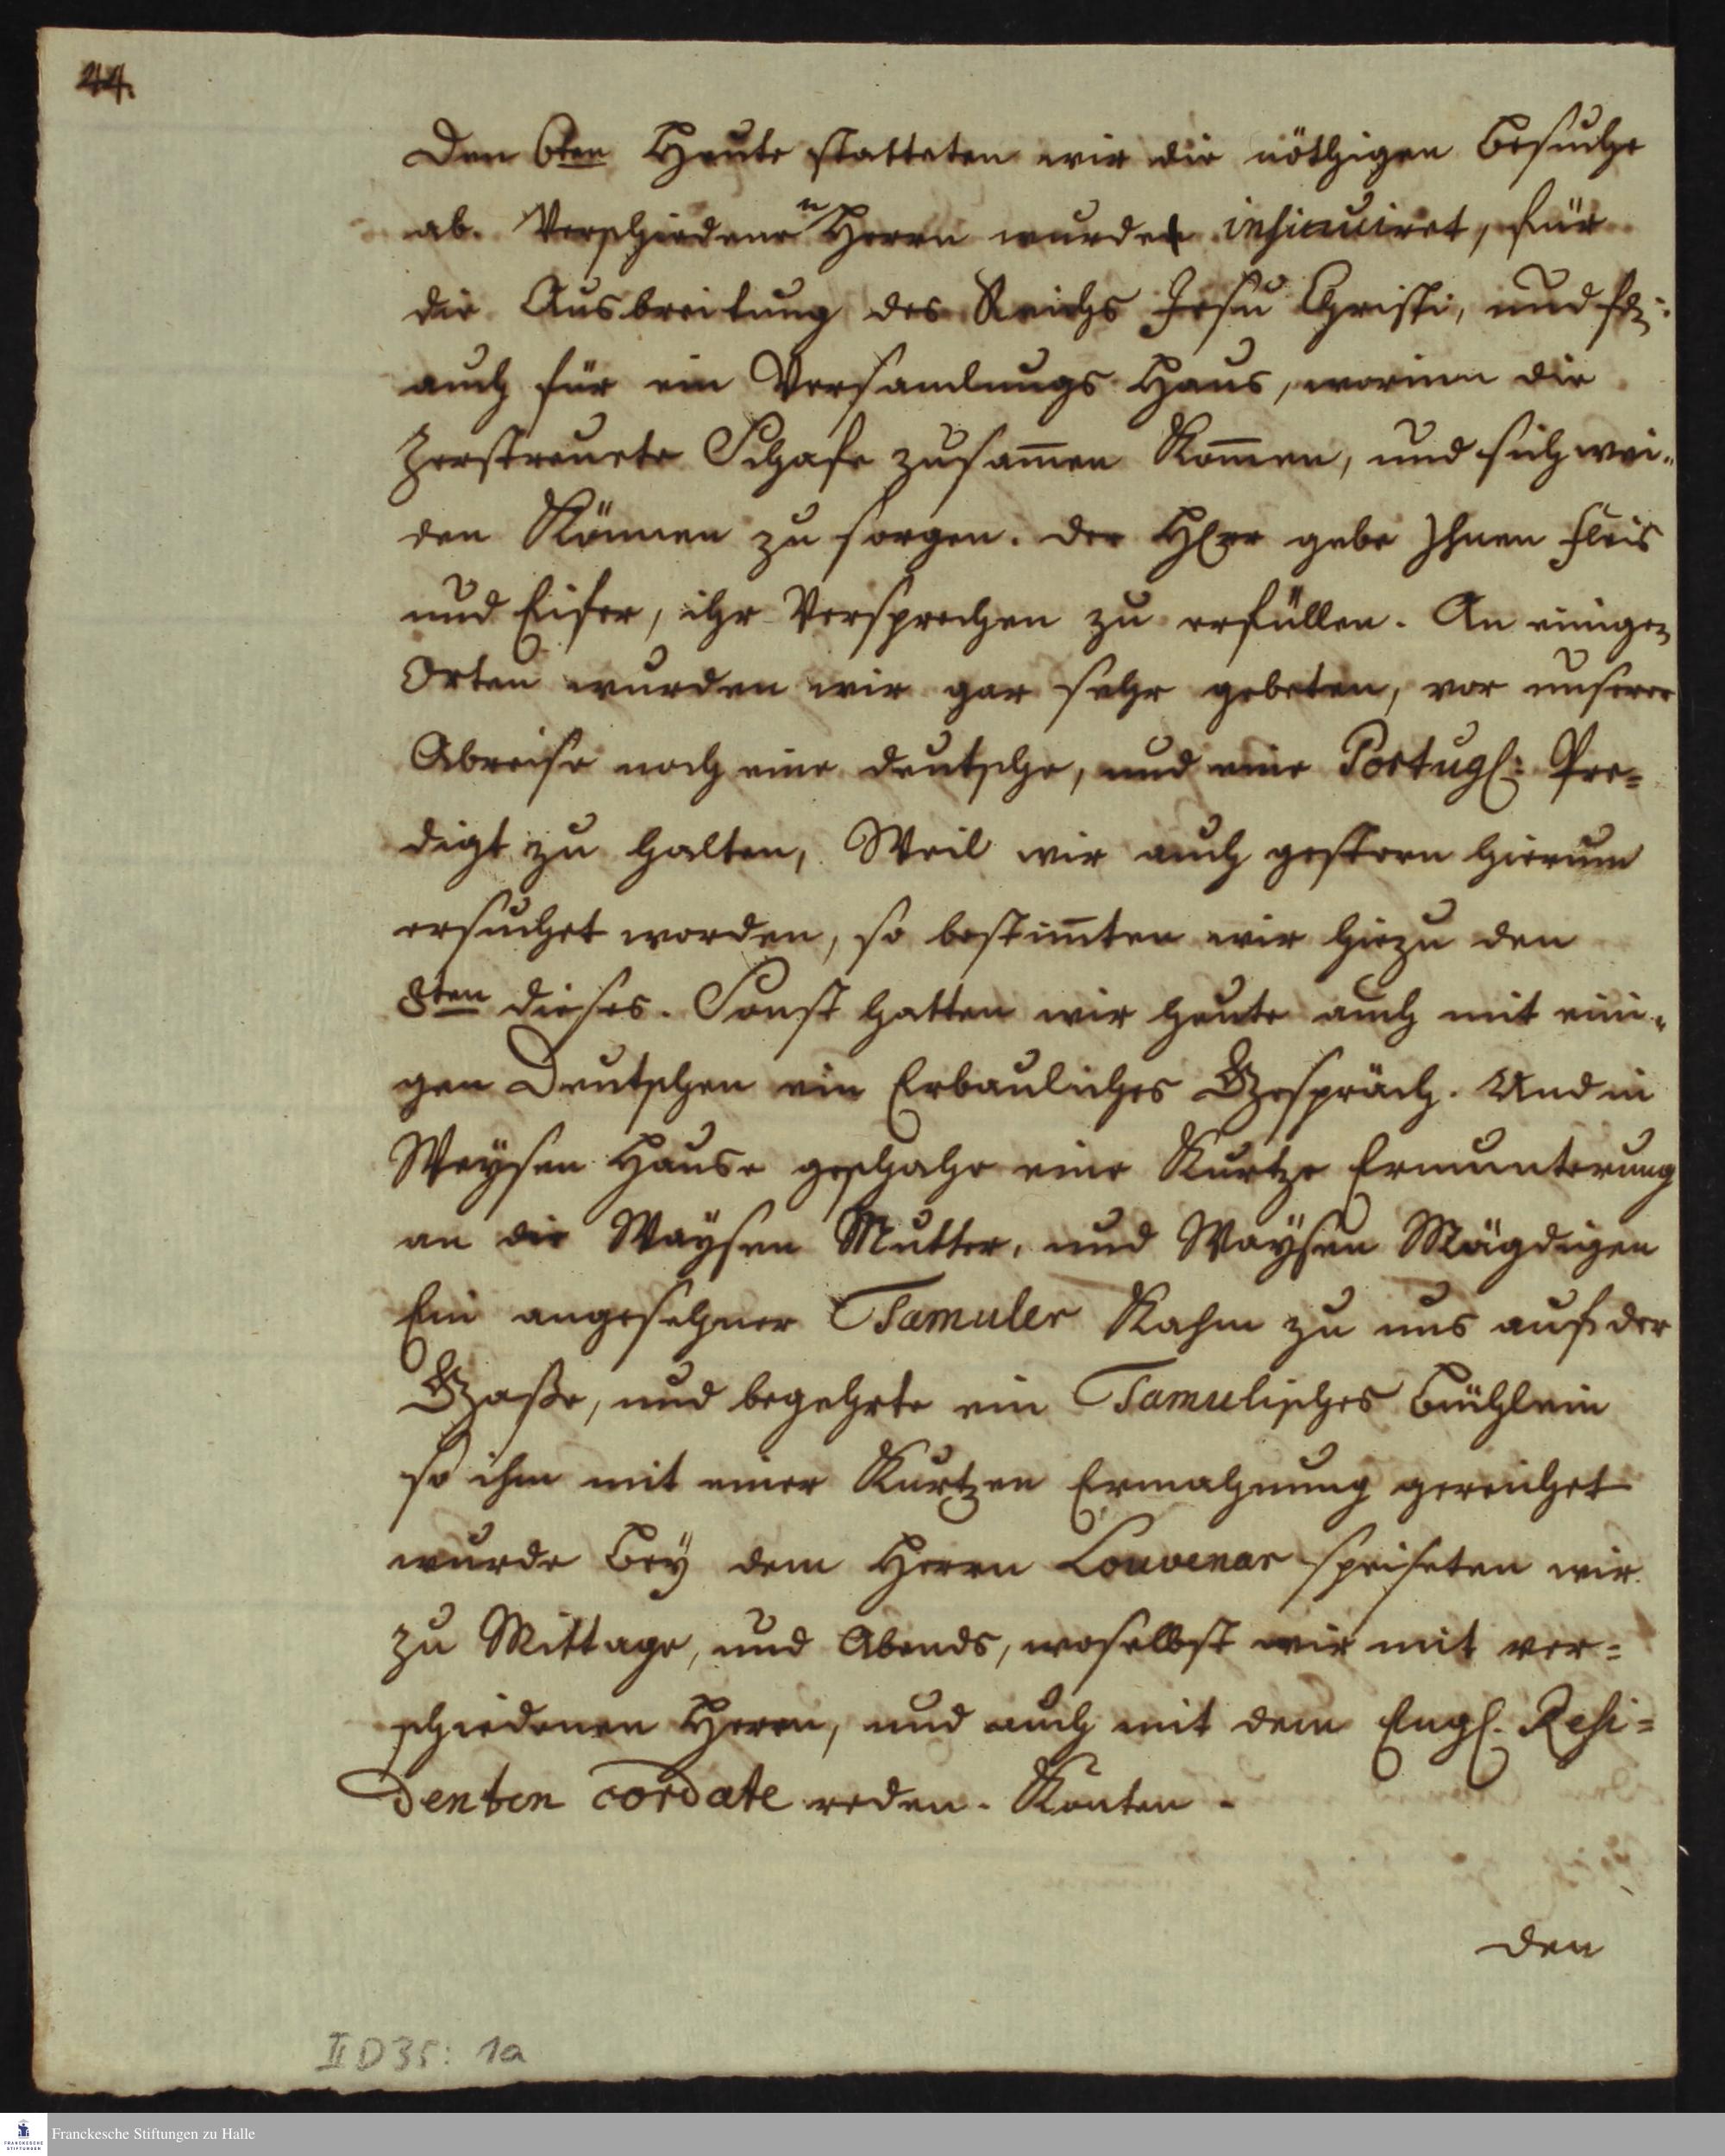 44.
Den 6ten Heute statteten wir die nöthigen Besuche
ab. Verschiedenen Herrn wurde insinuiret, für
die Ausbreitung des Reichs Jesu Christi, und
auch für ein Versamlungs Haus, worinn die
zerstreuete Schafe zusam̅en Kom̅en, und sich wei-
den Können zu sorgen. der HErr gebe Ihnen Fleis
und Eifer, ihr Versprechen zu erfüllen. An einigen
Orten wurden wir gar sehr gebeten, vor unserer
Abreise noch eine deutsche, und eine Portugl: Pre=
digt zu halten, Weil wir auch gestern hierum
ersuchet worden, so bestim̅ten wir hiezu den
8ten dieses. Sonst hatten wir heute auch mit eini-
gen Deutschen ein Erbauliches Gespräch. Und in
Weysen Hause geschahe eine Kurtze Ermunterung
an die Waysen Mutter, und Waysen Mägdigen
Ein angesehner Tamuler Kahm zu uns auf der
Gaße, und begehrte ein Tamulisches Büchlein
so ihm mit einer Kurtzen Ermahnung gereichet
wurde Bey dem Herrn Louvenar speiseten wir
zu Mittage, und Abends, woselbst wir mit ver=
schiedenen Herrn, und auch mit dem Engl. Resi=
denten cordate reden. Konten.
den
II D 35: 1a
Franckesche Stiftungen zu Halle
FRANCKESCHE
STIFTUNGEN